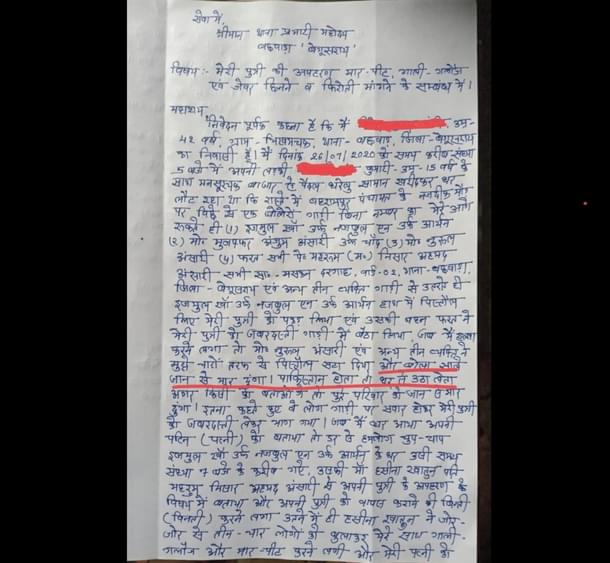 सेवा में,
श्रीमान थाना प्रभारी महोदय
बछवाड़ा 'बेगूसराय'
विषय :- मेरी पुत्री की अपहरण मार-पीट, गाली-गलौज
एवं जेवर छिनने व फिरौती मांगने के सम्बन्ध में।
महाशय
निवेदन पूर्वक कहना है कि मैं उम्र-
42 वर्ष, ग्राम- भिखमचक, थाना- बछवाड़ा, जिला- बेगूसराय
का निवासी हूँ। मैं दिनांक 26/07/2020 को समय करीब संध्या
5 बजे में अपनी लड़की कुमारी- उम्र- 15 वर्ष के
साथ मनसूरचक बाजार से पैदल घरेलू सामान खरीदकर घर
लौट रहा था कि रास्ते में बहरामपुर पंचायत के नजदीक मेन
पर पिछे से एक बोलेरो गाड़ी बिना नम्बर का मेरे आगे
रूकते ही (1) इजमुल खाँ उर्फ नजमुल एन उर्फ आर्यन
(2) मो० मुजफ्फर अंजुम अंसारी उर्फ चाँद (3) मो० नुरूल
अंसारी (4) फरत सभी पे० महरूम (म०) निसार अहमद
अंसारी सभी सा०- मसजद दरगाह, वार्ड-02, थाना- बछवाड़ा,
जिला- बेगूसराय एवं अन्य तीन व्यक्ति गाड़ी से उतरते ही
इजमुल खाँ उर्फ नजमुल एन उर्फ आर्यन हाथ में पिस्तौल
लिए मेरी पुत्री को पकड़ लिया एवं उसकी बहन फरत ने
मेरी पुत्री को जबरदस्ती गाड़ी में बैठा लिया। जब मैं हल्ला
करने लगा तो मो० नुरूल अंसारी एवं अन्य तीन व्यक्ति ने
मुझे चारों तरफ से पिस्तौल सटा दिया और बोला साले
जान से मार दूंगा। पाकिस्तान होता तो घर से उठा लेता
अगर किसी को बताओगे तो पुरे परिवार को जान से मार
दूंगा। इतना कहते हुए वे लोग गाड़ी पर सवार होकर मेरी पुत्री
को जबरदस्ती लेकर भाग गया। जब मैं घर आया अपनी
पत्नि (पत्नी) को बताया तो डर से हमलोग चुप-चाप
इजमुल खाँ उर्फ नजमुल एन उर्फ आर्यन के घर उसी समय
संध्या 7 बजे के करीब गए, उसकी माँ हसीना खातुन पति
महरुम निसार अहमद अंसारी से अपनी पुत्री के अपहरण के
विषय में बताया और अपनी पुत्री को वापस कराने की विनती
(विनती) करने लगा उतने में ही हसीना खातुन ने जोर-
जोर से तीन-चार लोगों को बुलाकर मेरे साथ गाली-
गलौज और मार-पीट करने लगी और मेरी पत्नी को